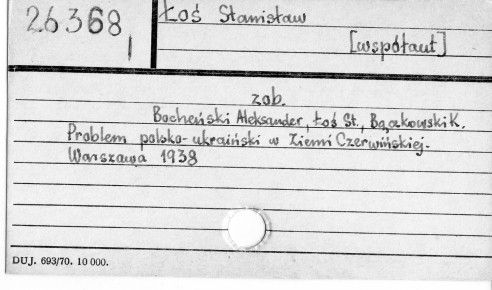 26368
I
Łoś Stanisław
[współaut]
zob.
Bocheński Aleksander, Łoś St., Bączkowski K.
Problem polsko-ukraiński w Ziemi Czerwińskiej.
Warszawa 1938
DUJ. 693/70. 10 000.